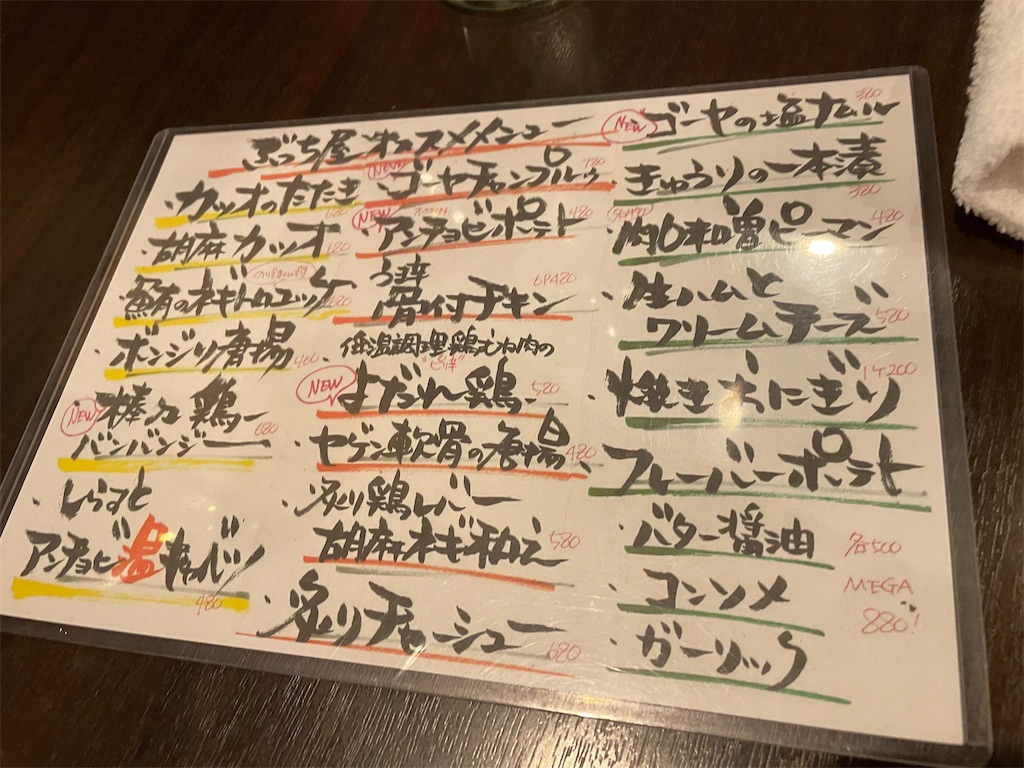 ぶっち屋オススメメニュー
・カツオのたたき
680
・胡麻カツオ
・鮪のネギトロユッケ
・ボンジリ唐揚
460
NEW
・棒々鶏
バンバンジー
680
・しらすと
アンチョビ温キャベツ
480
NEW
・ゴーヤチャンプルゥ
720
NEW
・アンチョビポテト
480
・うま辛
骨付チキン
6P480
・低温調理鶏むね肉の
"ピリ辛"
NEW
よだれ鶏
520
・ヤゲン軟骨の唐揚
480
・炙り鶏レバー
胡麻ネギ和え
580
・炙りチャーシュー
680
NEW
・ゴーヤの塩ナムル
320
・きゅうりの一本漬
320
・肉味噌ピーマン
480
・生ハムと
クリームチーズ
520
・焼きおにぎり
1ケ200
・フレーバーポテト
バター醤油
各500
コンソメ
MEGA
ガーリック
880!